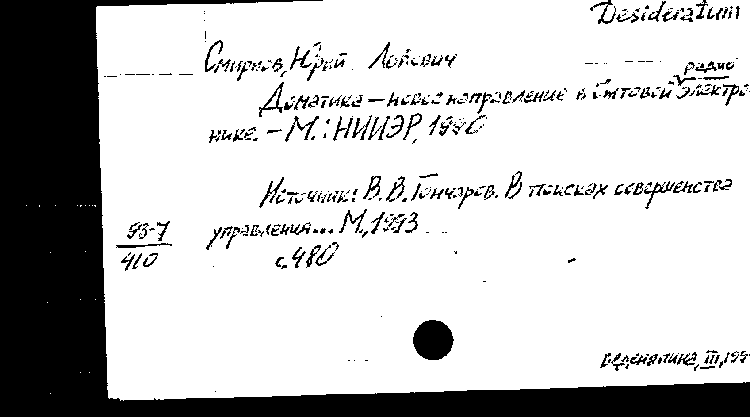 Desideratum
Смирнов, Юрий Львович
радио
Доматика – новое направление в бытовой электро-
нике. – М.: НИИЭР, 1990
Источник: В. В. Гончаров. В поисках совершенства
управления... М., 1993
с. 480
93-7
410
III, 199